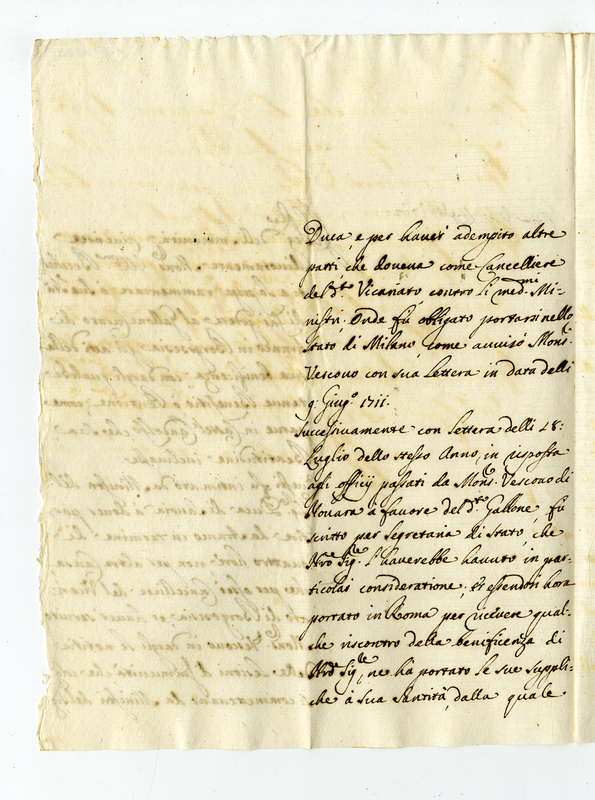 Duca, e per haver adempito altre
parti, che doveva come Cancelliere
del d.to Vicariato, contro li med.mi Mi-
nistri; Onde fù obligato portarsi nello
Stato di Milano, come avvisò Mons.r
Vescovo con sua Lettera in data delli
9: Giug.o 1711.
Successivamente con Lettera delli 18:
Luglio dello stesso Anno, in risposta
agli officij passati da Mons.r Vescovo di
Novara à favore del d.to Gallone, fù
scritto per Segretaria di Stato, che
N'ro Sig.re l'haverebbe havuto in par-
ticolar consideratione; Et essendosi hora
portato in Roma per ricevere qual-
che riscontro della beneficenza di
N'ro Sig.re, ne hà portato le sue suppli-
che à Sua Santità, dalla quale